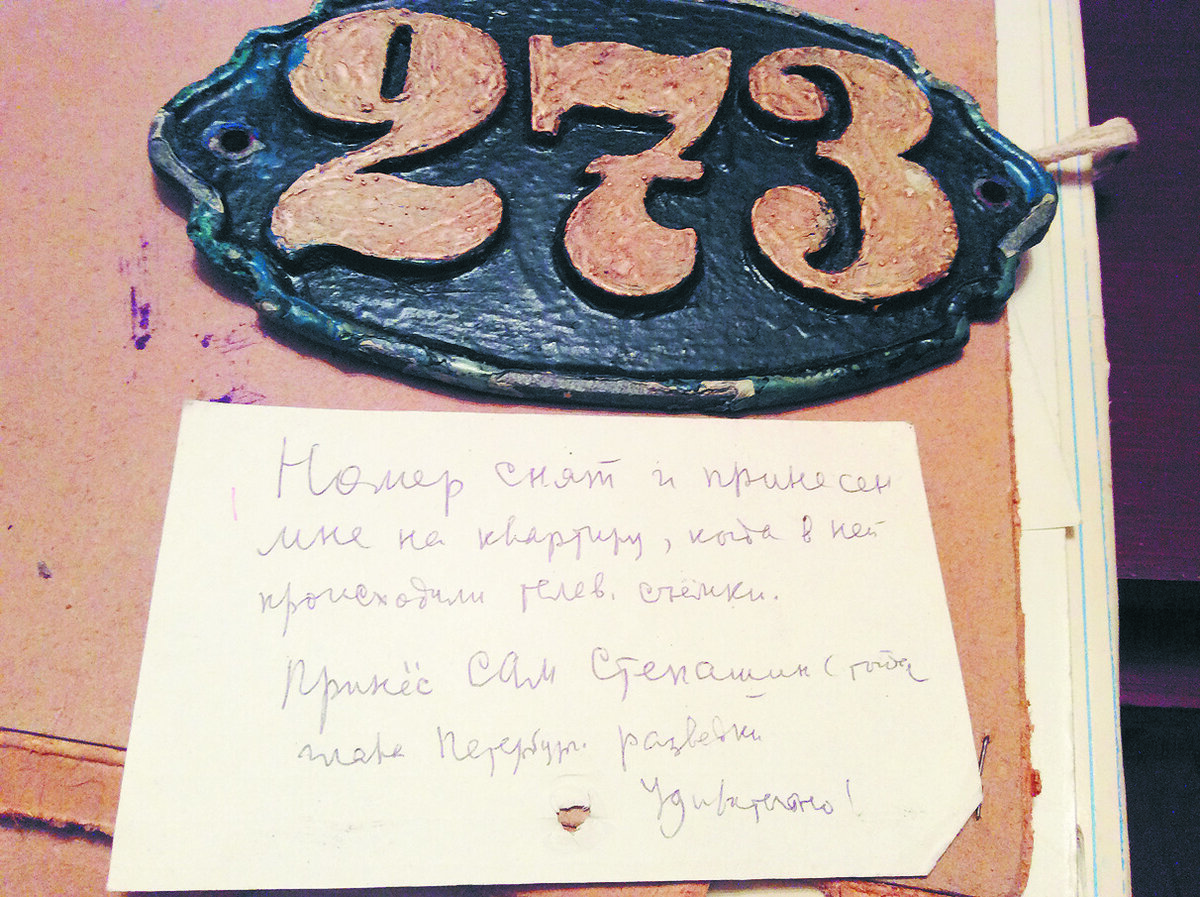 273
Номер снят и принесен
мне на квартиру, когда в ней
происходили телев. съёмки.
Принёс САм Степашин (тогда
глава Петербург. разведки
Удивительно!